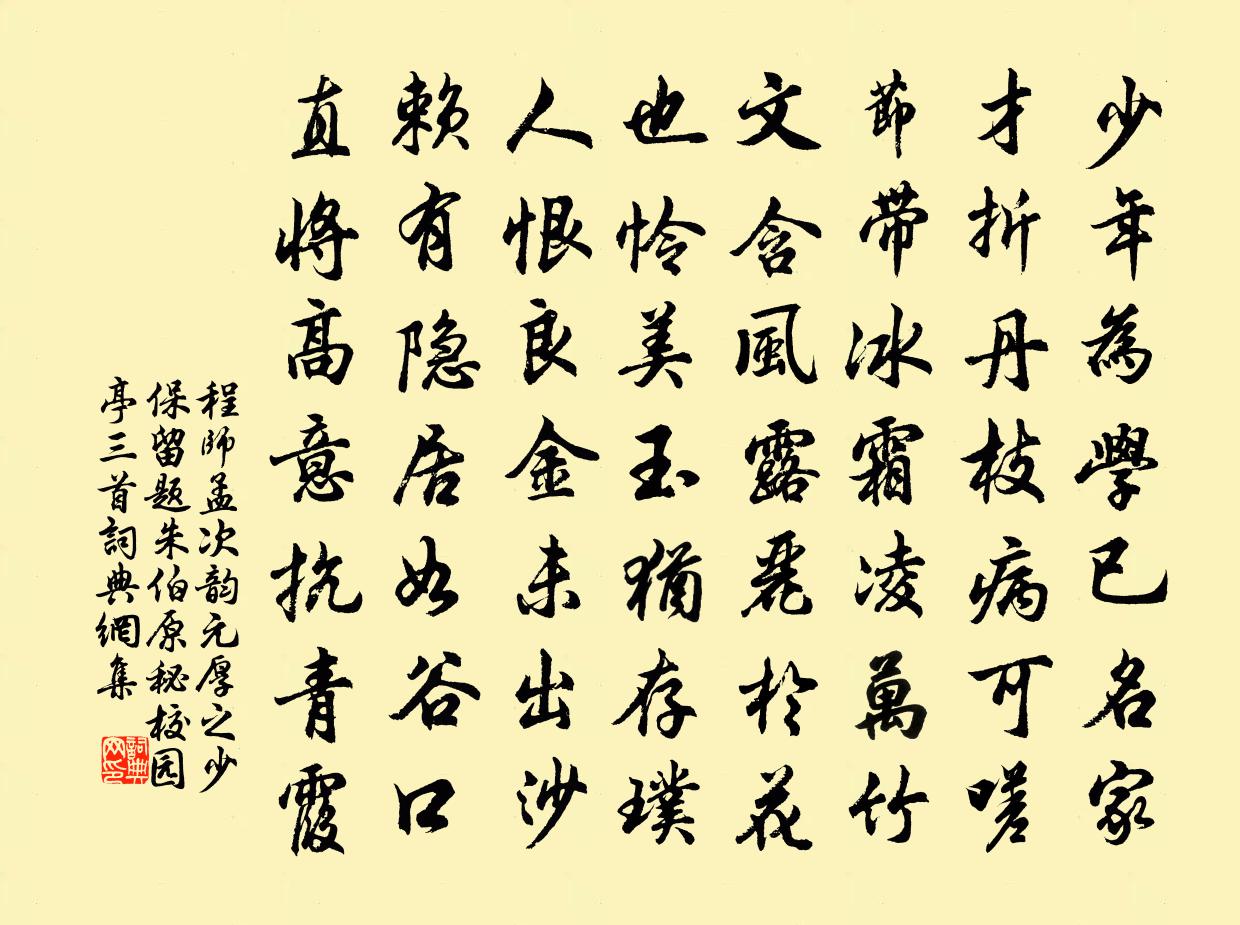 少年為學已名家
才折丹枝病可嗟
節带冰霜凌萬竹
文含風露麗於花
也怜美玉猶存璞
人恨良金未出沙
赖有隐居如谷口
直將高意抗青霞
程師孟次韵元厚之少
保留題朱伯原秘校园
亭三首詞典網集
詞典网印